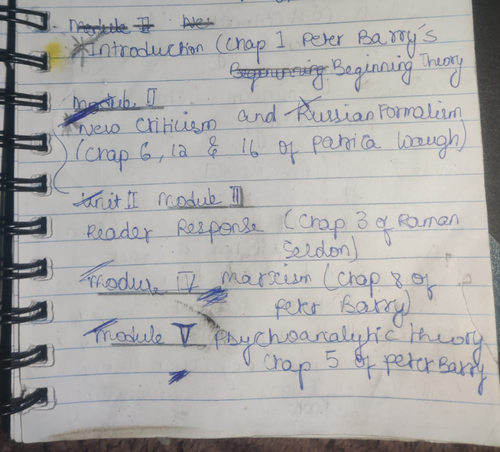 Module II New
Introduction (Chap 1 Peter Barry's
Beginning Beginning Theory
Module II
New Criticism and Russian Formalism
(Chap 6, 12 & 16 of Patrica Waugh)
Unit II Module III
Reader Response (Chap 3 of Raman
Seldon)
Module IV Marxism (Chap 8 of
Peter Barry)
Module V Psychoanalytic Theory
Chap 5 of Peter Barry